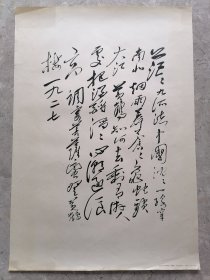 茫茫九派流中国沉沉一线穿
南北烟雨莽苍苍龟蛇锁
大江黄鹤知何去剩有游人
处把酒酹滔滔心潮逐浪
高 调寄菩萨蛮登黄鹤
楼一九二七